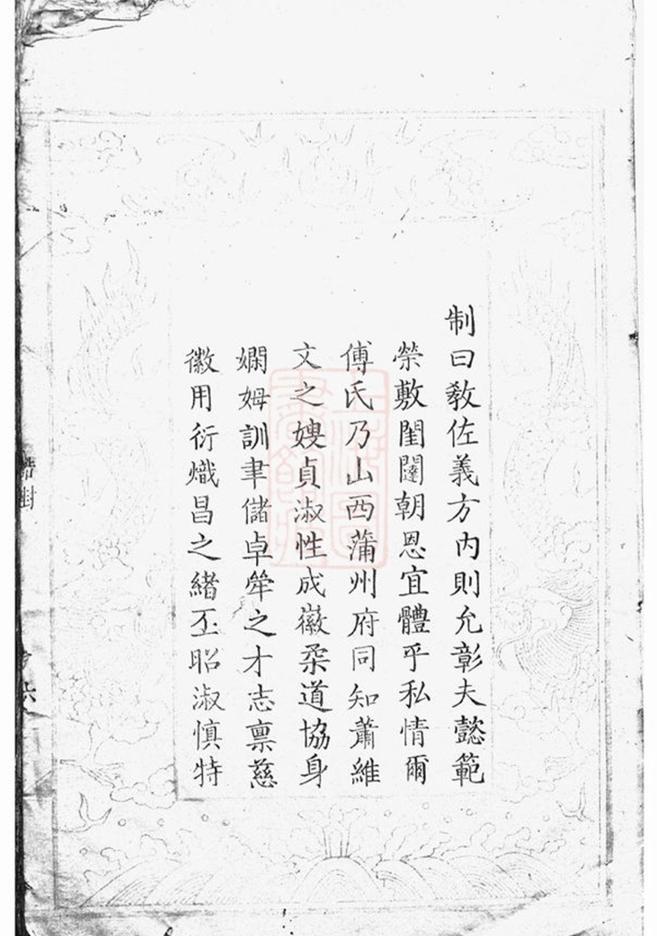 制曰教佐義方内則允彰夫懿範
榮敷閨闥朝恩宜體乎私情爾
傅氏乃山西蒲州府同知蕭維
文之嫂貞淑性成徽柔道協身
嫻姆訓聿儲卓犖之才志稟慈
徽用衍熾昌之緒丕昭淑慎特
誥封
六